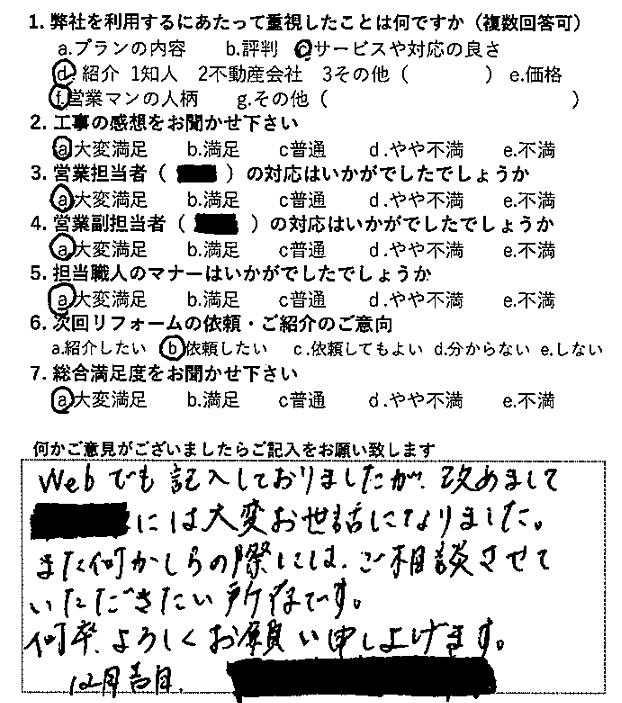 1. 弊社を利用するにあたって重視したことは何ですか（複数回答可）
a.プランの内容 b.評判 cサービスや対応の良さ
d.紹介 1知人 2不動産会社 3その他（ ）e.価格
f.営業マンの人柄 g.その他（ ）
2. 工事の感想をお聞かせ下さい
a大変満足 b.満足 c普通 d.やや不満 e.不満
3. 営業担当者（ ）の対応はいかがでしたでしょうか
a大変満足 b.満足 c普通 d.やや不満 e.不満
4. 営業副担当者（ ）の対応はいかがでしたでしょうか
a大変満足 b.満足 c普通 d.やや不満 e.不満
5. 担当職人のマナーはいかがでしたでしょうか
a大変満足 b.満足 c普通 d.やや不満 e.不満
6. 次回リフォームの依頼・ご紹介のご意向
a.紹介したい b依頼したい c.依頼してもよい d.分からない e.しない
7. 総合満足度をお聞かせ下さい
a大変満足 b.満足 c普通 d.やや不満 e.不満
何かご意見がございましたらご記入をお願い致します
Webでも記入しておりましたが、改めまして
には大変お世話になりました。
また何かしらの際には、ご相談させて
いただきたい所存です。
何卒よろしくお願い申し上げます。
12月吉日.